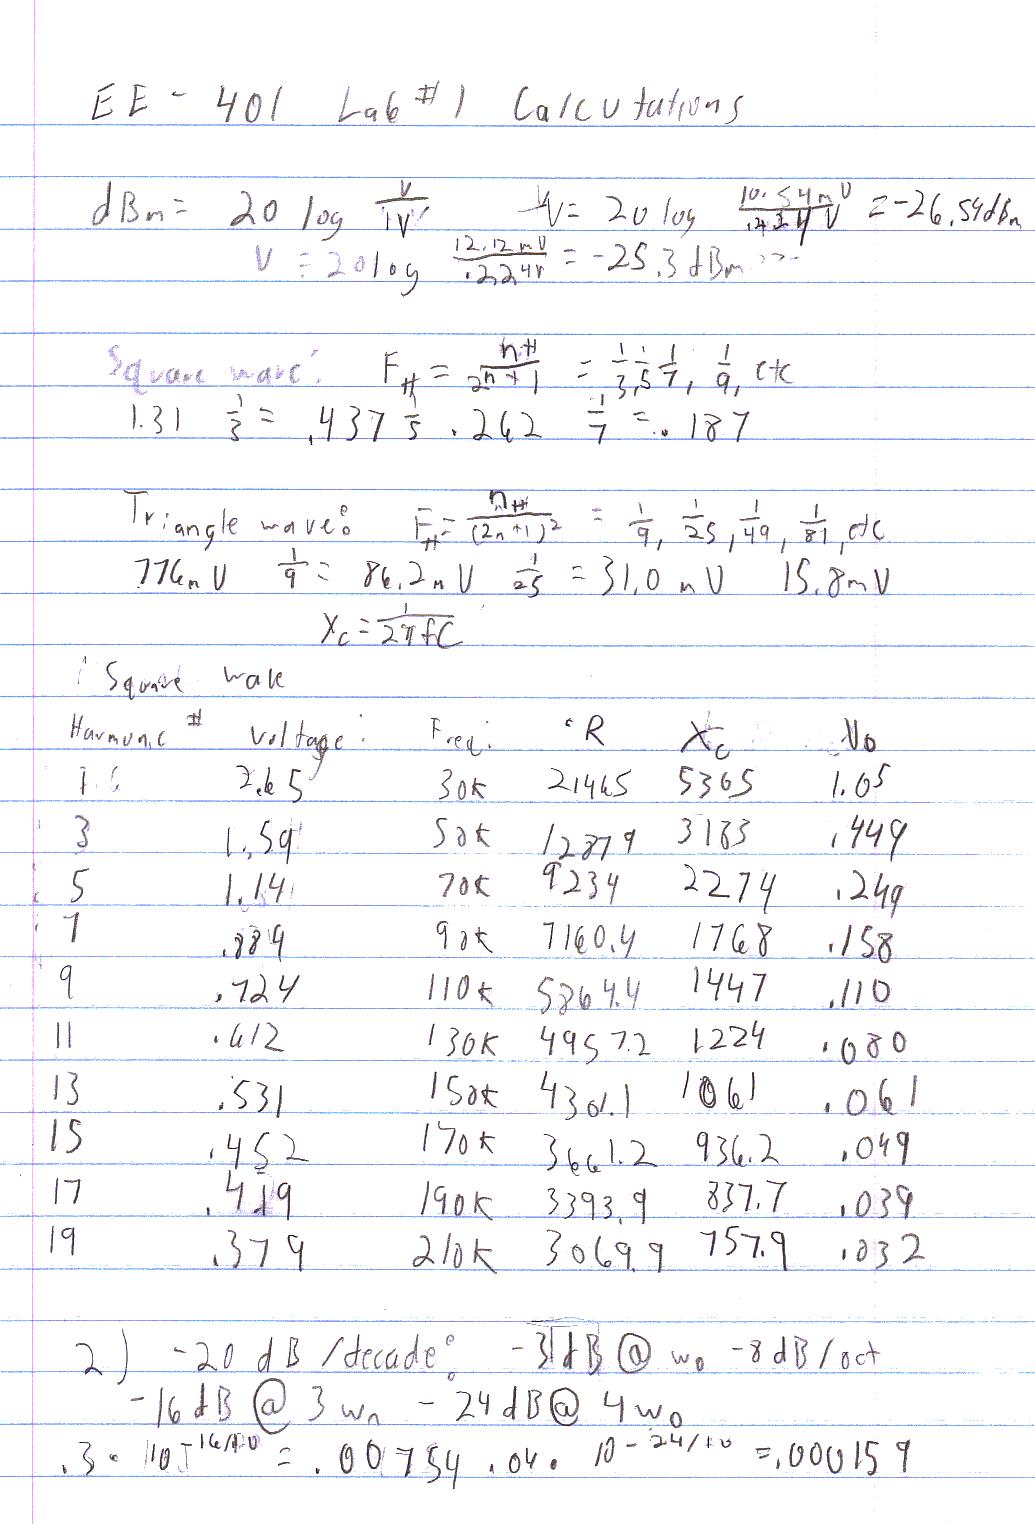 EE - 401 Lab #1 Calculations
dBm = 20 log V/1V V = 20 log 10.54mV/ V = -26.54dBm
V = 20log 12.12mV/.224V = -25.3 dBm
Square wave: F_H = nH/2n+1 = 1/3, 1/5, 1/7, 1/9, etc
1.31 1/3 = .437 1/5 .262 1/7 = .187
Triangle wave: F_H = nH/(2n+1)² = 1/9, 1/25, 1/49, 1/81, etc
776mV 1/9 = 86.2mV 1/25 = 31.0 mV 15.8mV
Xc = 1/2πfC
Square wave
Harmonic # Voltage: Freq. R Xc Vo
1 2.65 30K 21465 5305 1.05
3 1.59 50K 12879 3183 .449
5 1.14 70K 9234 2274 .249
7 .884 90K 7160.4 1768 .158
9 .724 110K 5864.4 1447 .110
11 .612 130K 4957.2 1224 .080
13 .531 150K 4301.1 1061 .061
15 .452 170K 3661.2 936.2 .049
17 .419 190K 3393.9 837.7 .039
19 .379 210K 3069.9 757.9 .032
2) -20 dB /decade: -3dB @ wo -8dB/oct
-16dB @ 3wn - 24dB@ 4wo
.3 · 10^-16/10 = .00754 .04 · 10^-24/10 = .000159